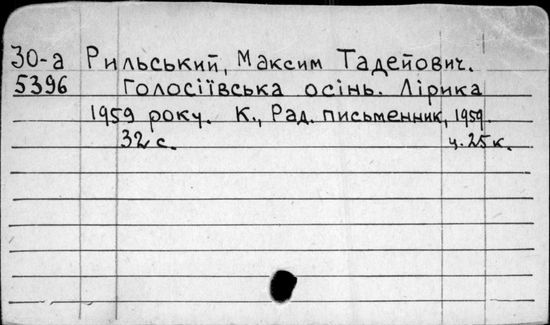 30-а Рильський, Максим Тадейович.
5396 Голосіївська осінь. Лірика
1959 року. К., Рад. письменник, 1959.
32 с. ц. 25 к.